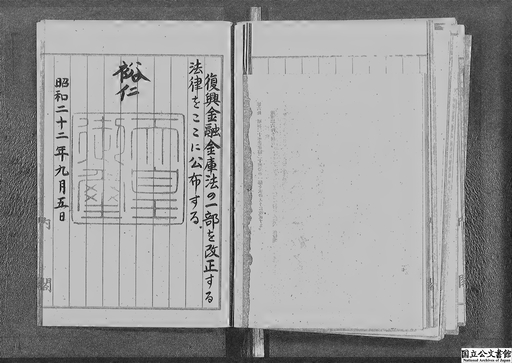 復興金融金庫法の一部を改正する
法律をここに公布する。
裕仁
天皇
御璽
昭和二十二年九月五日
内閣
国立公文書館
National Archives of Japan